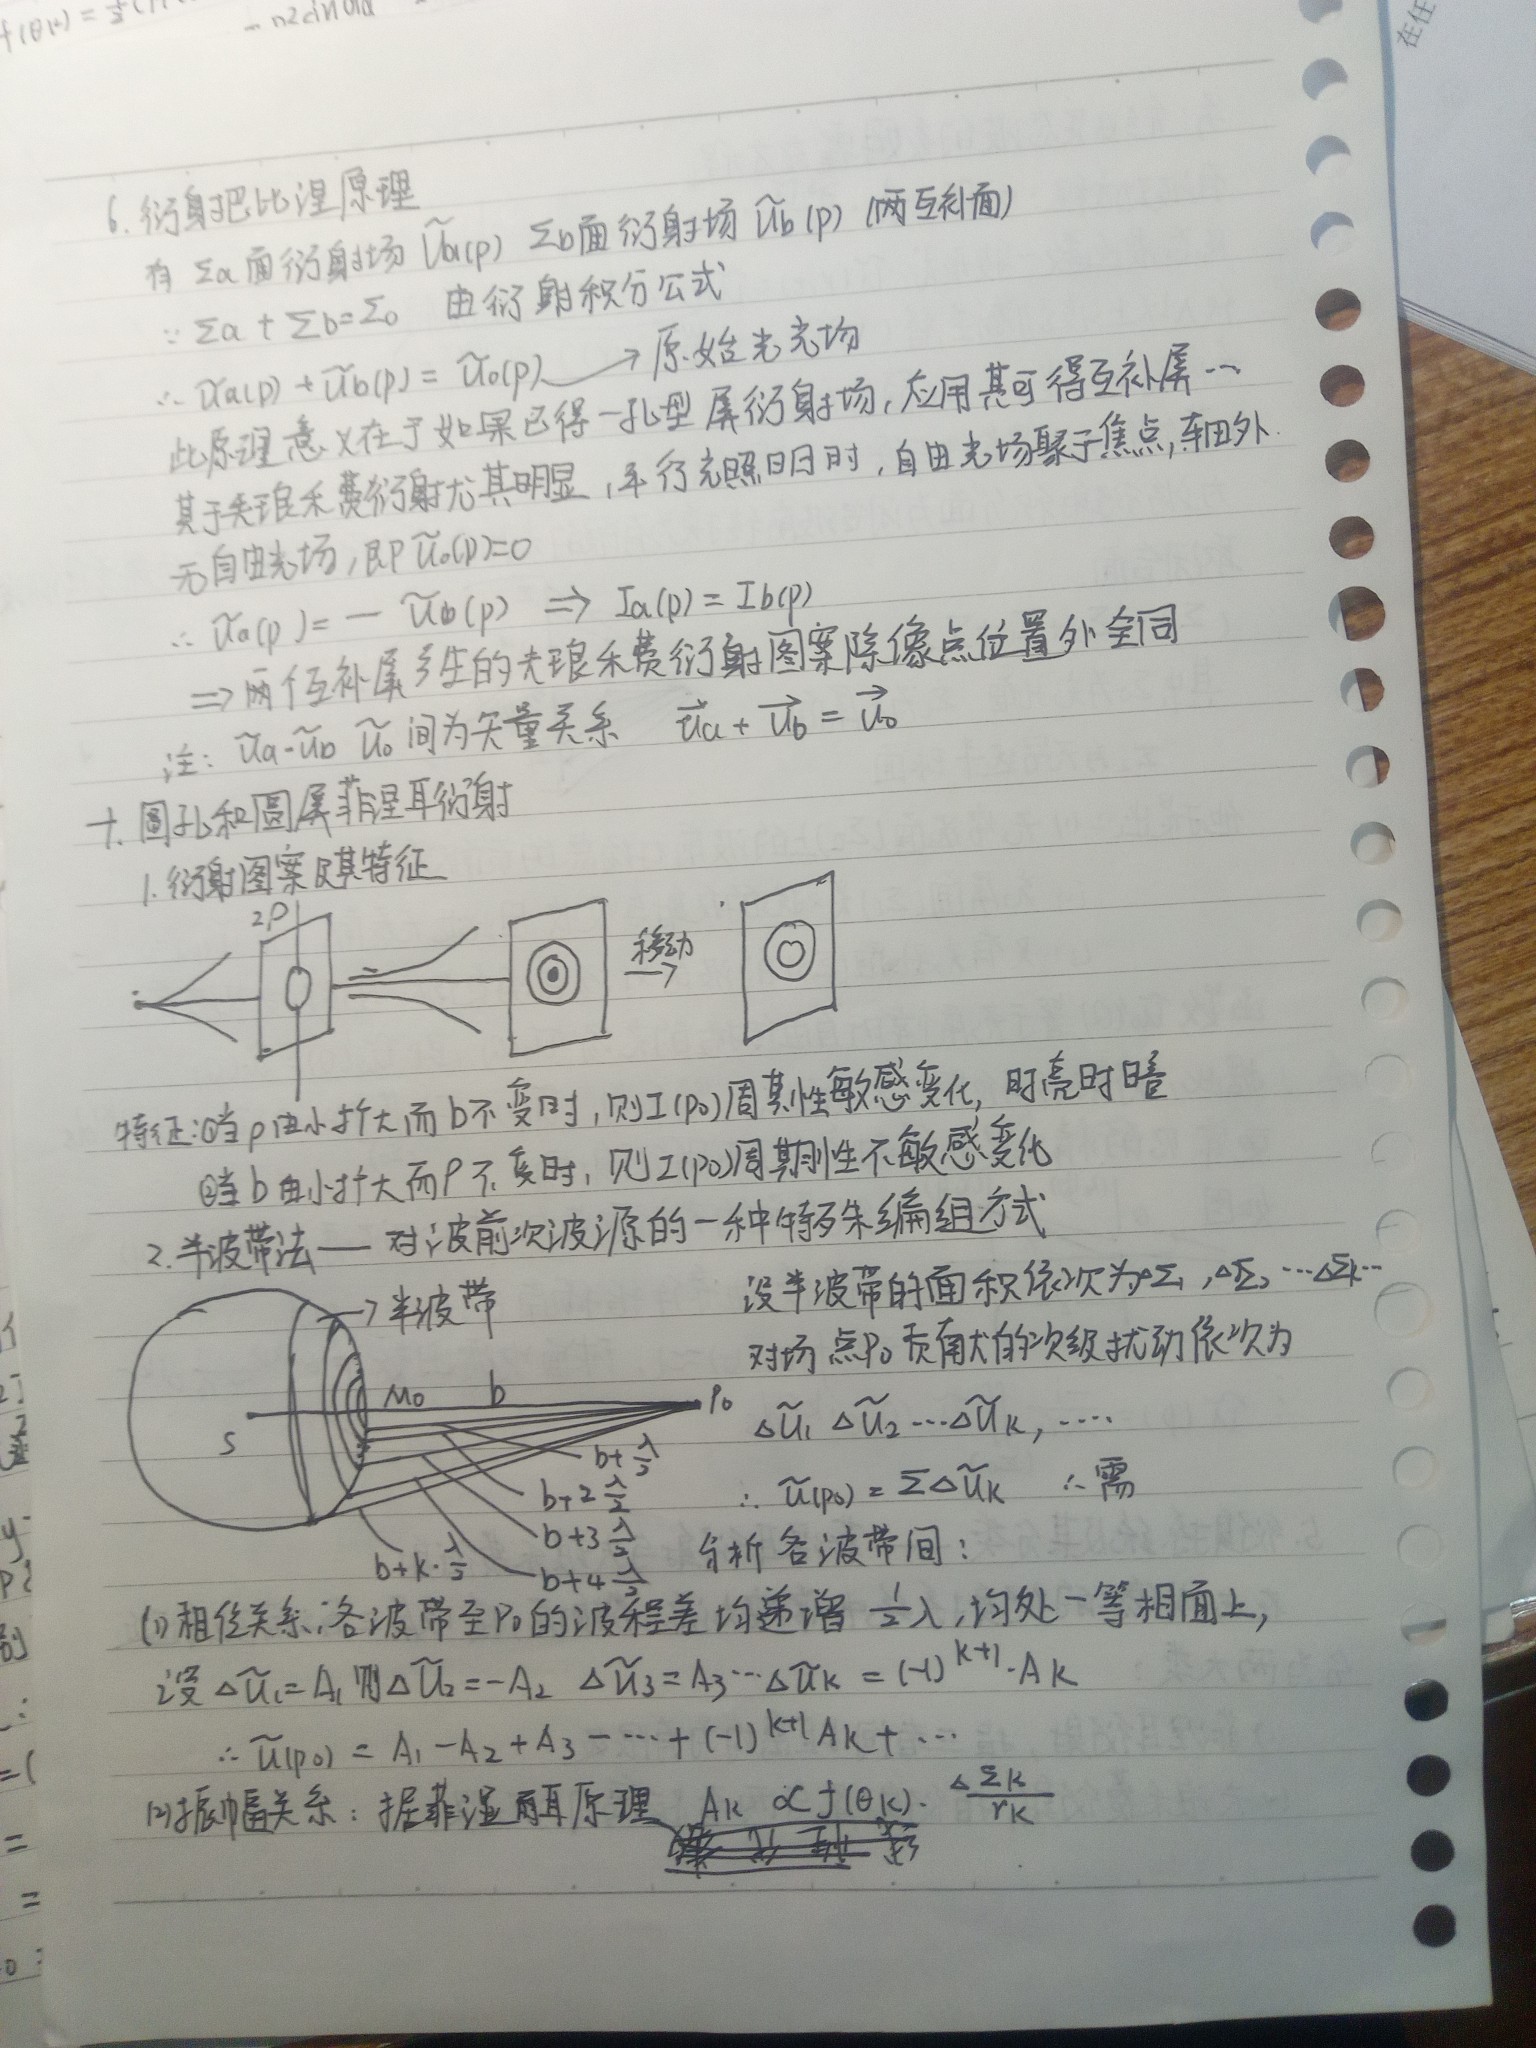 6. 衍射把比涅原理
有 Σa面衍射场 Ũa(p) Σb面衍射场 Ũb(p) (两互补面)
∵ Σa + Σb = Σ0 由衍射积分公式
∴ Ũa(p) + Ũb(p) = Ũ0(p) → 原始光光场
此原理意义在于如果已得一孔型屏衍射场, 应用其可得互补屏…
其于夫琅禾费衍射尤其明显, 平行光照明时, 自由光场聚于焦点, 轴外
无自由光场, 即Ũ0(p)=0
∴ Ũa(p) = - Ũb(p) ⇒ Ia(p) = Ib(p)
⇒ 两个互补屏产生的夫琅禾费衍射图案除像点位置外全同
注: Ũa Ũb Ũ0 间为矢量关系 U⃗a + U⃗b = U⃗0
十. 圆孔和圆屏菲涅耳衍射
1. 衍射图案及其特征
2ρ
移动
特征: ①当ρ由小扩大而b不变时, 则I(P0)周期性敏感变化, 时亮时暗
②当b由小扩大而ρ不变时, 则I(P0)周期性不敏感变化
2. 半波带法 — 对波前次波源的一种特殊编组方式
半波带
设半波带的面积依次为ΔΣ1, ΔΣ2 … ΔΣk …
对场点P0贡献的次级扰动依次为
S M0 b P0
ΔŨ1 ΔŨ2 … ΔŨk, ….
b+λ/2
b+2 λ/2
∴ Ũ(P0) = ΣΔŨk ∴ 需
b+3 λ/2
分析各波带间:
b+k·λ/2 b+4 λ/2
(1) 相位关系: 各波带至P0的波程差均递增 1/2 λ, 均处一等相面上,
设 ΔŨ1 = A1 则 ΔŨ2 = -A2 ΔŨ3 = A3 … ΔŨk = (-1)^{k+1}·Ak
∴ Ũ(P0) = A1 - A2 + A3 - … + (-1)^{k+1} Ak + …
(2) 振幅关系: 据菲涅耳原理 Ak ∝ f(θk)· ΔΣk/rk